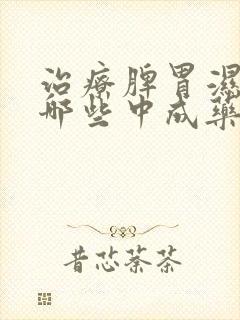 治療脾胃濕
哪些中成藥
昔芯茶